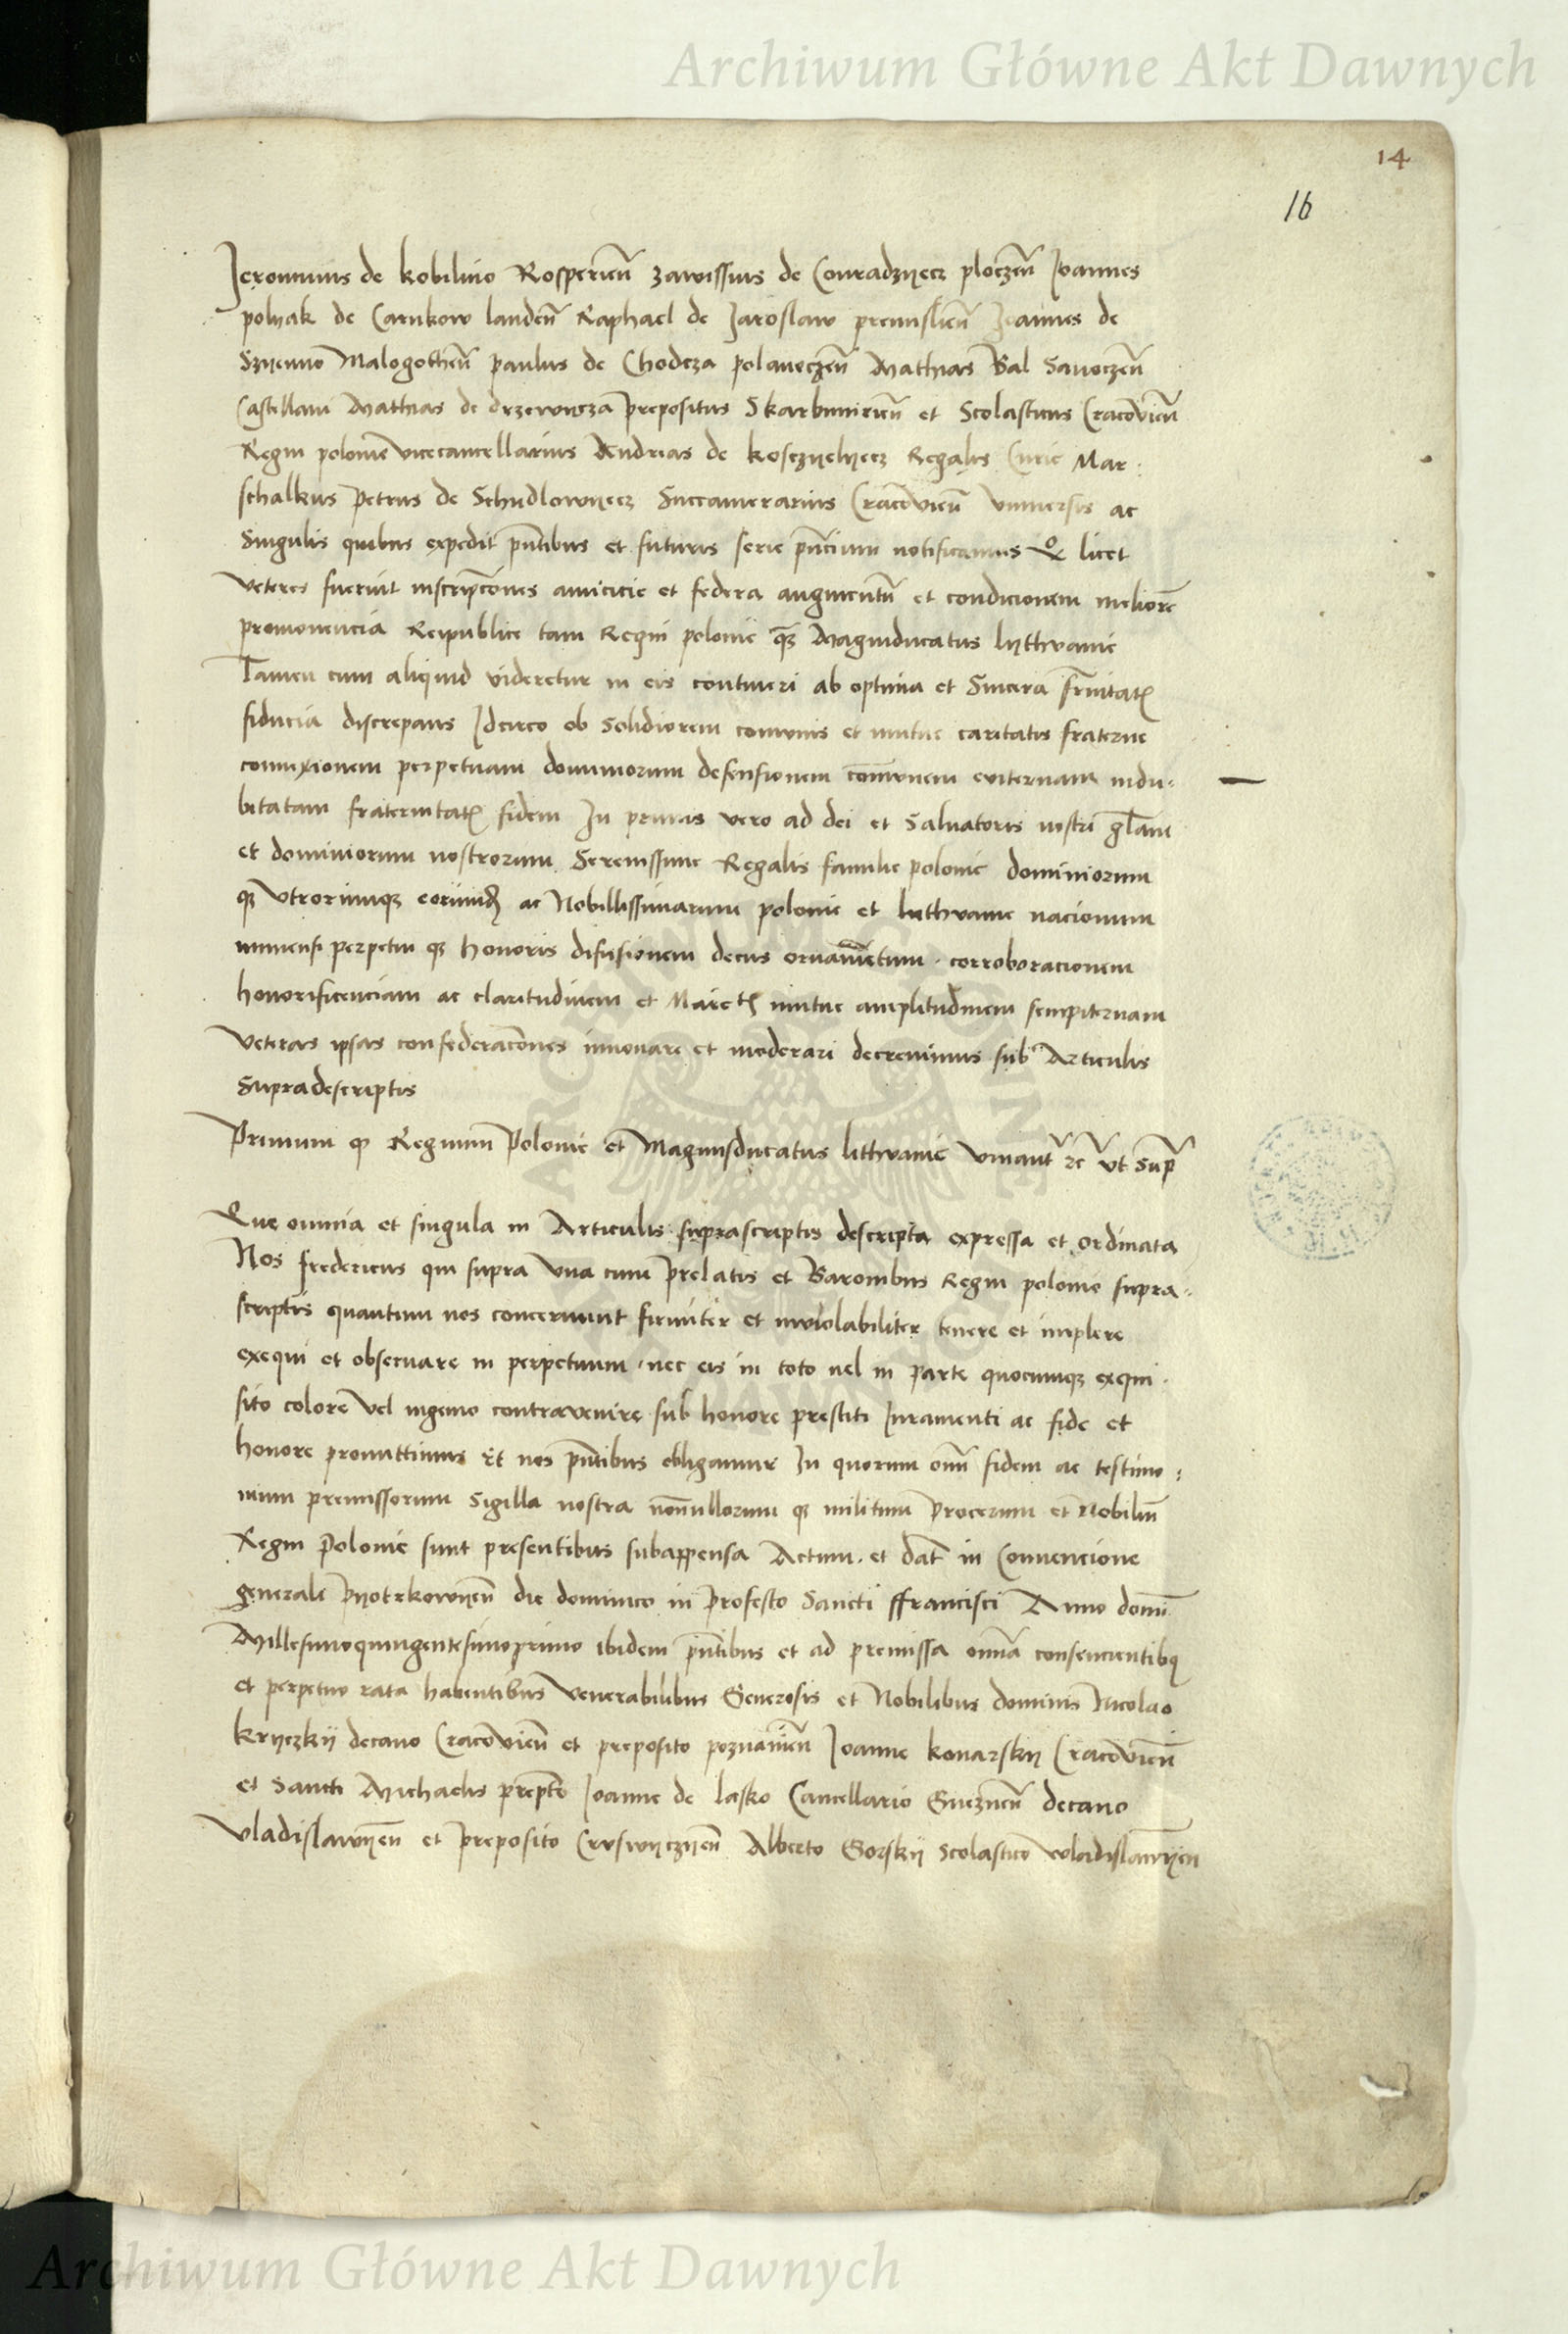 Archiwum Główne Akt Dawnych
14
16
Jeronimus de kobilino Rosperien̄ zawissius de Conradzyecz ploczen̄ Joannes
polyak de Carnkow landen̄ Raphael de Jaroslaw premislien̄ Joannes de
Szyenno Malogosten̄ paulus de Chodcza polaneczen̄ Mathias Bal Sanoczen̄
Castellani Mathias de drzewicza prepositus Skarbimirien̄ et Scolasticus Cracovien̄
Regni polonie vicecancellarius Andreas de kosczyelyecz Regalis Curie Mar:
schalkus Petrus de Schidlowyecz Succamerarius Cracovien̄ vniuersis ac
Singulis quibus expedit pn̄tibus et futuris serie pn̄cium notificamus Qo licet
veteres fuerint inscripcōnes amicicie et federa augmentū et condicionem meliorē
promouencia Reipublice tam Regni polonie qꝫ Magniducatus lythvanie
Tamen cum aliquid videretur in eis contineri ab optima et Sincera fr̄nitatꝭ
fiducia discrepans Idcirco ob Solidiorem comunis et mutue caritatis fraterne
connexionem perpetuam dominiorum defensionem com̄unem eviternam indu-
bitatam fraternitatꝭ fidem In primis vero ad dei et Salvatoris nostri glam̄
et dominiorum nostrorum Serenissime Regalis familie polonie dominiorum
qꝫ vtrorumqꝫ eorundꝫ ac Nobillissimarum polonie et lithvanie nacionum
immensi perpetui qꝫ honoris difusionem decus ornamentum corroboracionem
honorificenciam ac claritudinem et Maiectꝭ mutue amplitudinem sempiternam
veteras ipsas confederacōnes innouare et moderari decreuimus sub Articulis
Supradescriptis
Primum qꝫ Regnum Polonie et Magnusducatus lithvanie vniant̄ ꝛc̄ vt Sup̄
Que omnia et singula in Articulis suprascriptis descripta expressa et ordinata
Nos fredericus qui supra vna cum prelatis et Baronibus Regni polonie supra-
scriptis quantum nos concernunt firmiter et inviolabiliter tenere et implere
exequi et obseruare in perpetuum nec eis in toto vel in parte quocumqꝫ exqui-
sito colore vel ingenio contravenire sub honore prestiti Juramenti ac fide et
honore promittimus Et nos pn̄tibus obligamur In quorum om̄i fidem ac testimo:
nium premissorum Sigilla nostra non̄ullorum qꝫ militum Procerum et Nobiliū
Regni Polonie sunt presentibus subappensa Actum et dat̄ in Convencione
generali Pyotrkowyen̄ die dominico in Profesto Sancti ffrancisci Anno domī
Millesimoquingentesimoprimo ibidem pn̄tibus et ad premissa om̄ia consencientibꝫ
et perpetuo rata habentibus venerabilibus Generosis et Nobilibus dominis Nicolao
kryczkij decano Cracovien̄ et preposito poznanien̄ Joanne konarskij Cracovien̄
et Sancti Michaelis prepto Joanne de lasko Cancellario Gneznen̄ decano
vladislawyen̄ et Preposito Crvswyczyen̄ Alberto Gorskij Scolastico wladislawyen̄
Archiwum Główne Akt Dawnych